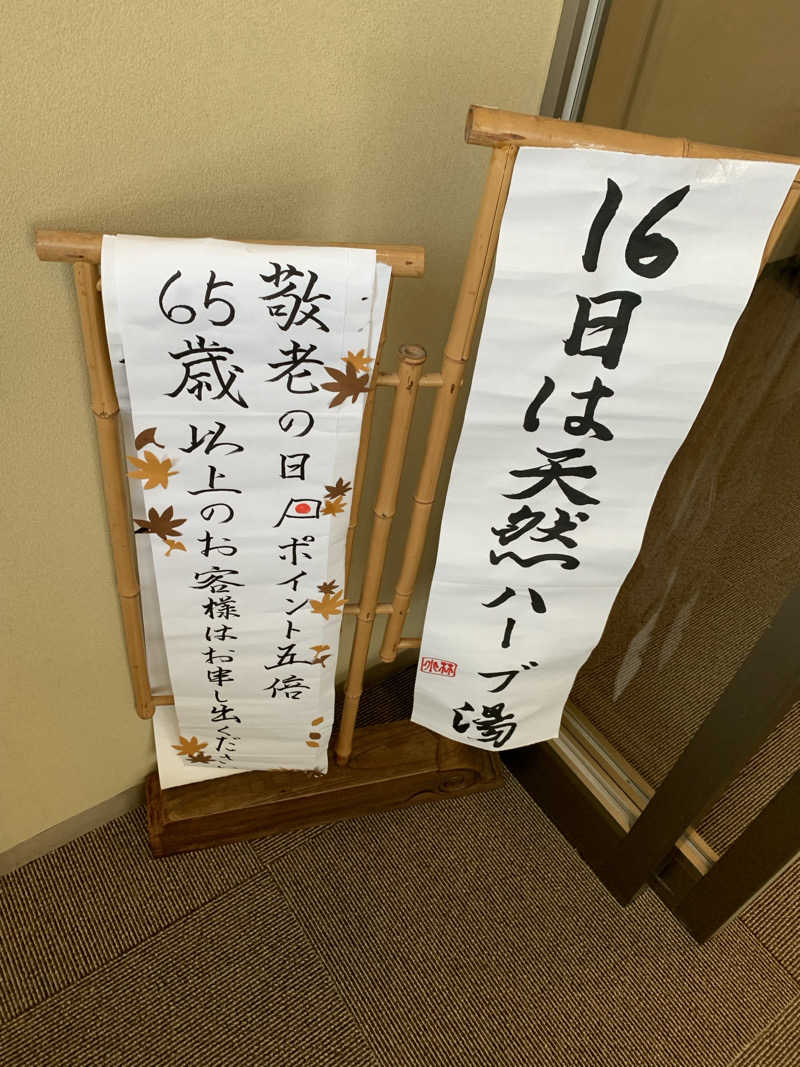 16日は天然ハーブ湯
敬老の日ポイント五倍
65歳以上のお客様はお申し出くださ